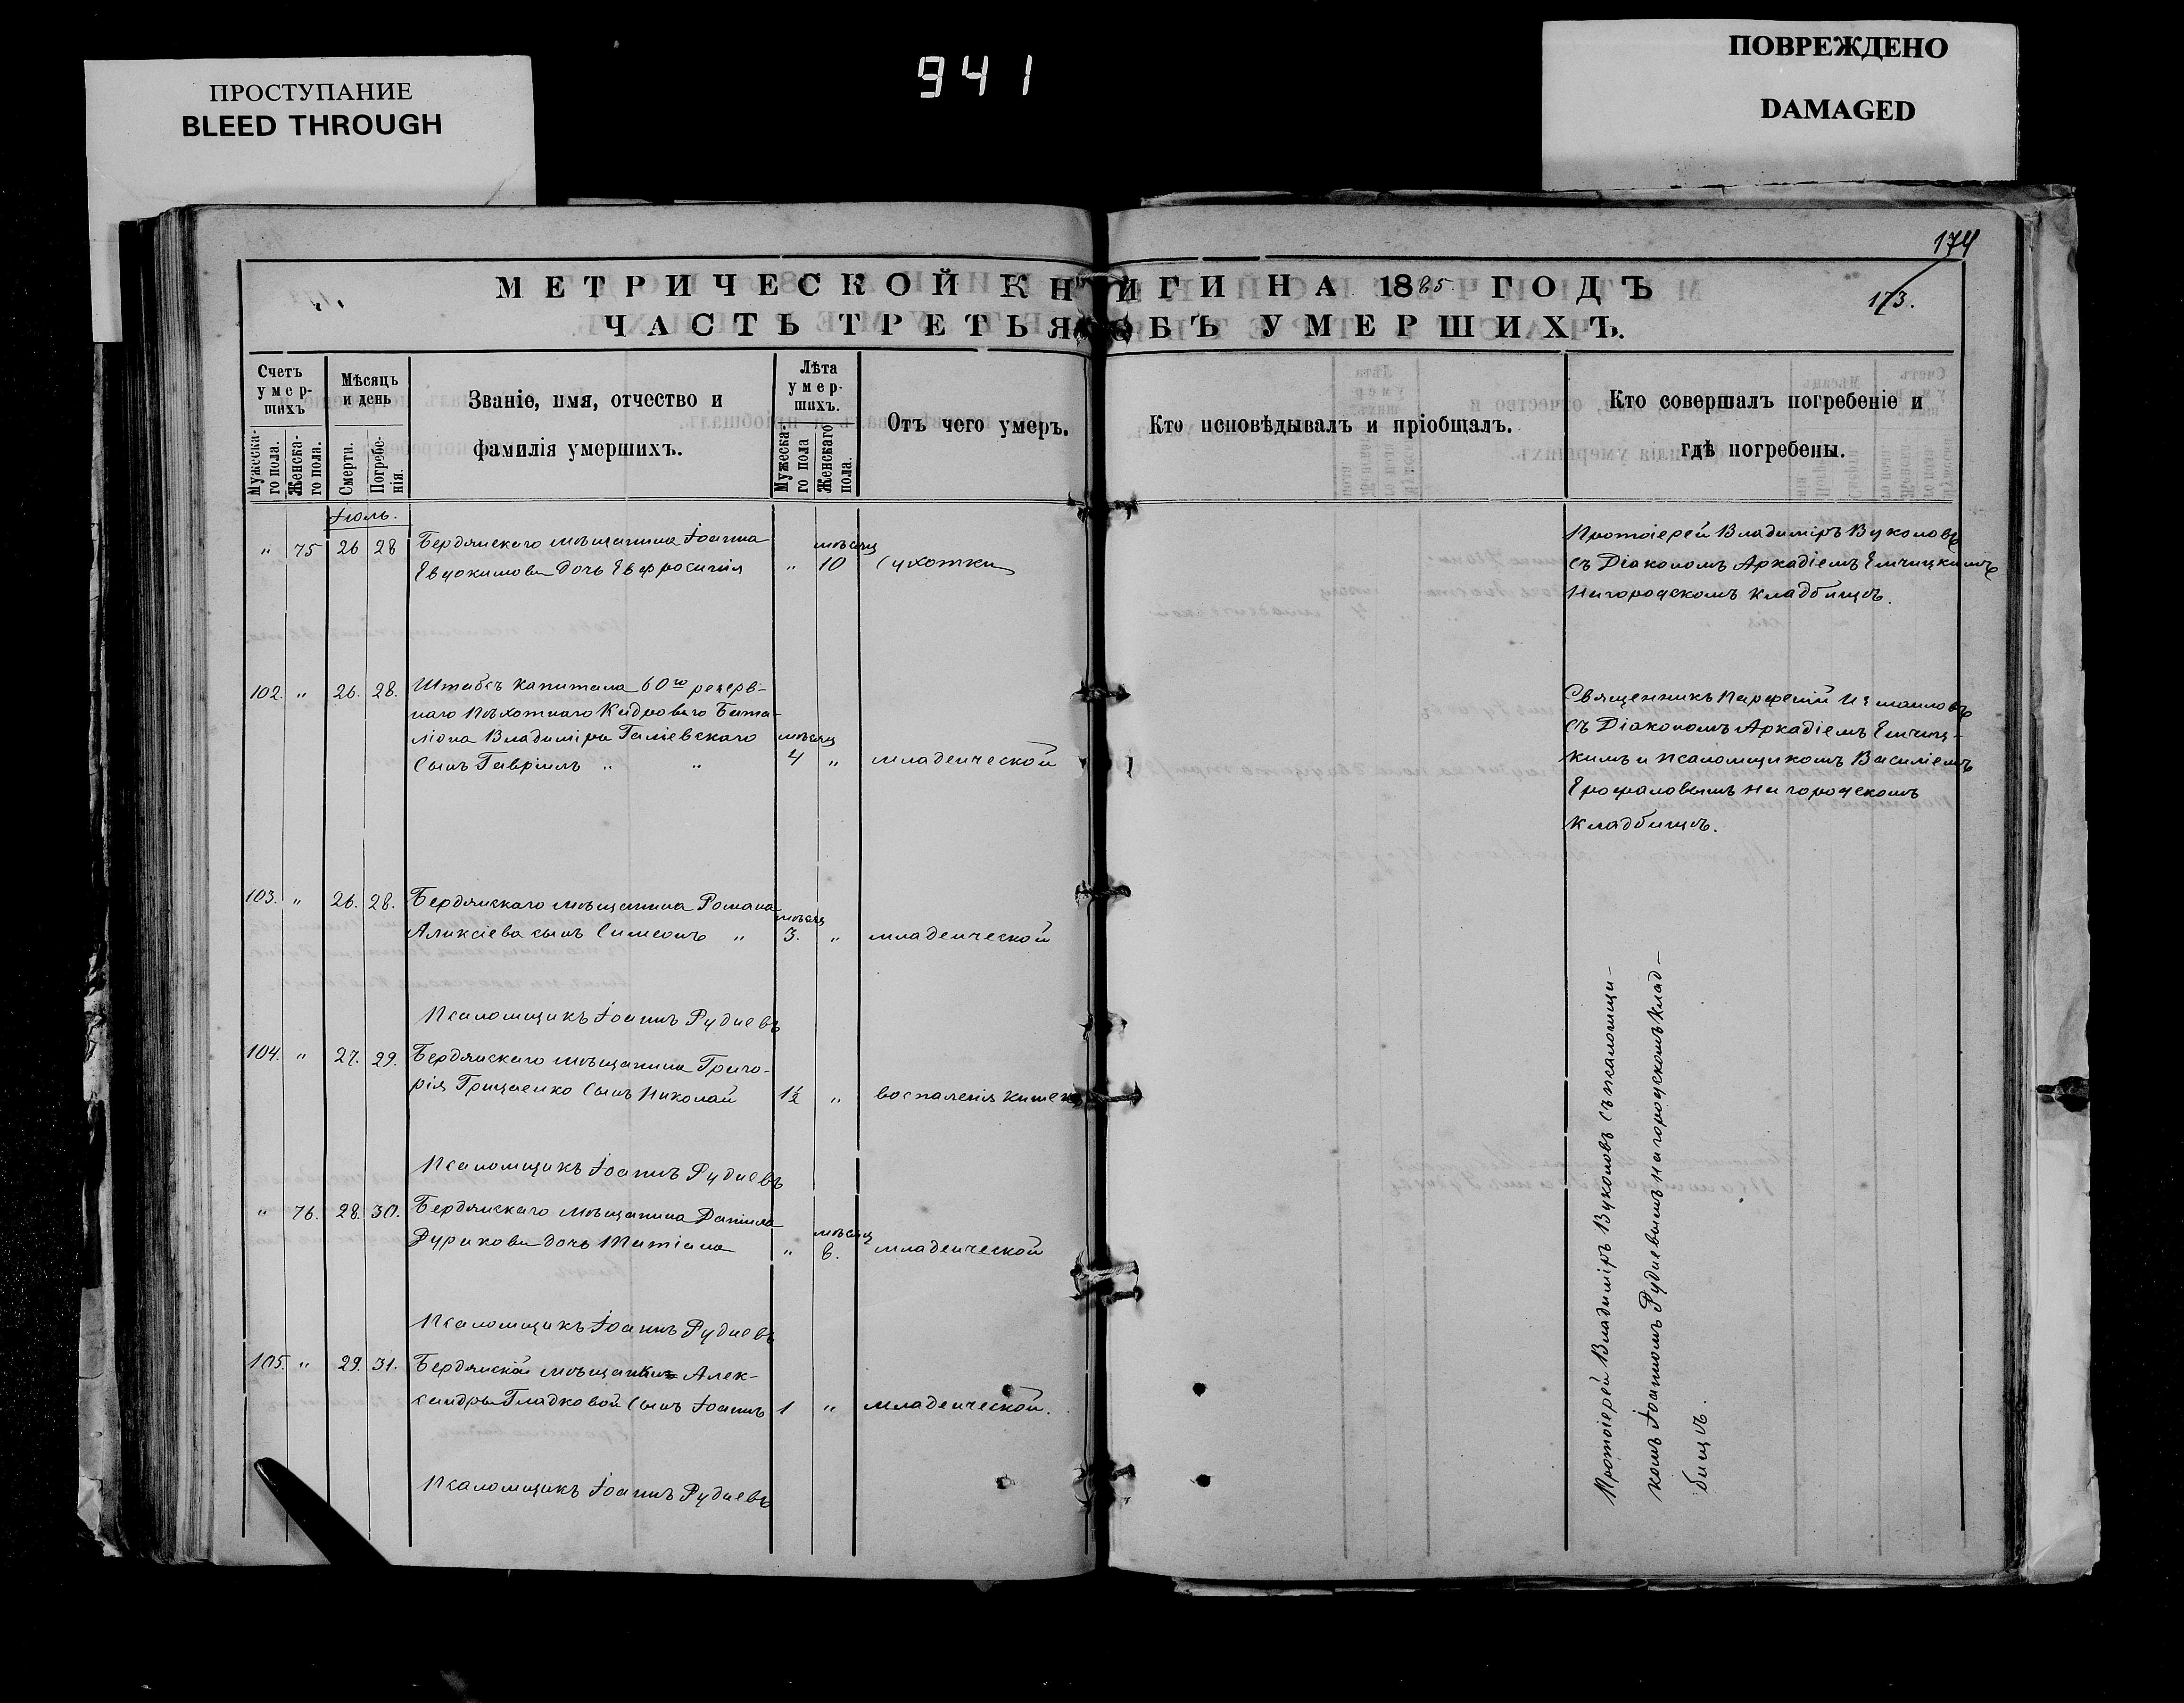 ПРОСТУПАНИЕ
BLEED THROUGH
941
ПОВРЕЖДЕНО
DAMAGED
174
173.
МЕТРИЧЕСКОЙ КНИГИ НА 1885 ГОДЪ
ЧАСТЬ ТРЕТЬЯ ОБЪ УМЕРШИХЪ.
Счетъ
умер-
шихъ
Мужеска-
го пола.
Женска-
го пола.
Мѣсяцъ
и день
Смерти.
Погребе-
нія.
Званіе, имя, отчество и
фамилія умершихъ.
Лѣта
умер-
шихъ.
Мужеска-
го пола
Женскаго
пола.
Отъ чего умеръ.
Кто исповѣдывалъ и пріобщалъ.
Кто совершалъ погребеніе и
гдѣ погребены.
Іюль.
" 75 26 28 Бердянскаго мѣщанина Іоанна
Евдокимова дочь Евфросинія " мѣсяц 10 Сухотки
Протоіерей Владиміръ Вуколовъ
съ Діакономъ Аркадіемъ
На городскомъ кладбищѣ.
102. " 26. 28. Штабсъ Капитана 60го резерв-
наго Пѣхотнаго Кадроваго Бата-
ліона Владиміра Галіевскаго
сынъ Гавріилъ " " мѣсяц 4 " младенческой
Священникъ Парфеній Измаиловъ
съ Діакономъ Аркадіемъ
кимъ и псаломщикомъ Василіемъ
Ерофаловымъ на городскомъ
кладбищѣ.
103. " 26. 28. Бердянскаго мѣщанина Романа
Аликсіева сынъ Симеонъ " мѣсяц 3. " младенческой
Псаломщикъ Іоаннъ Рудиевъ
104. " 27. 29. Бердянскаго мѣщанина Григо-
рія Грицаенко сынъ Николай 1½ " воспаленія кишек
Псаломщикъ Іоаннъ Рудиевъ
" 76. 28. 30. Бердянскаго мѣщанина Даніила
Дурикова дочь Татіана " мѣсяц 8. младенческой
Псаломщикъ Іоаннъ Рудиевъ
105. " 29. 31. Бердянской мѣщанки Алек-
сандры Гладковой сынъ Іоаннъ 1 " младенческой.
Псаломщикъ Іоаннъ Рудиевъ
Протоіерей Владиміръ Вуколовъ съ псаломщи-
комъ Іоанномъ Рудиевымъ на городскомъ клад-
бищѣ.